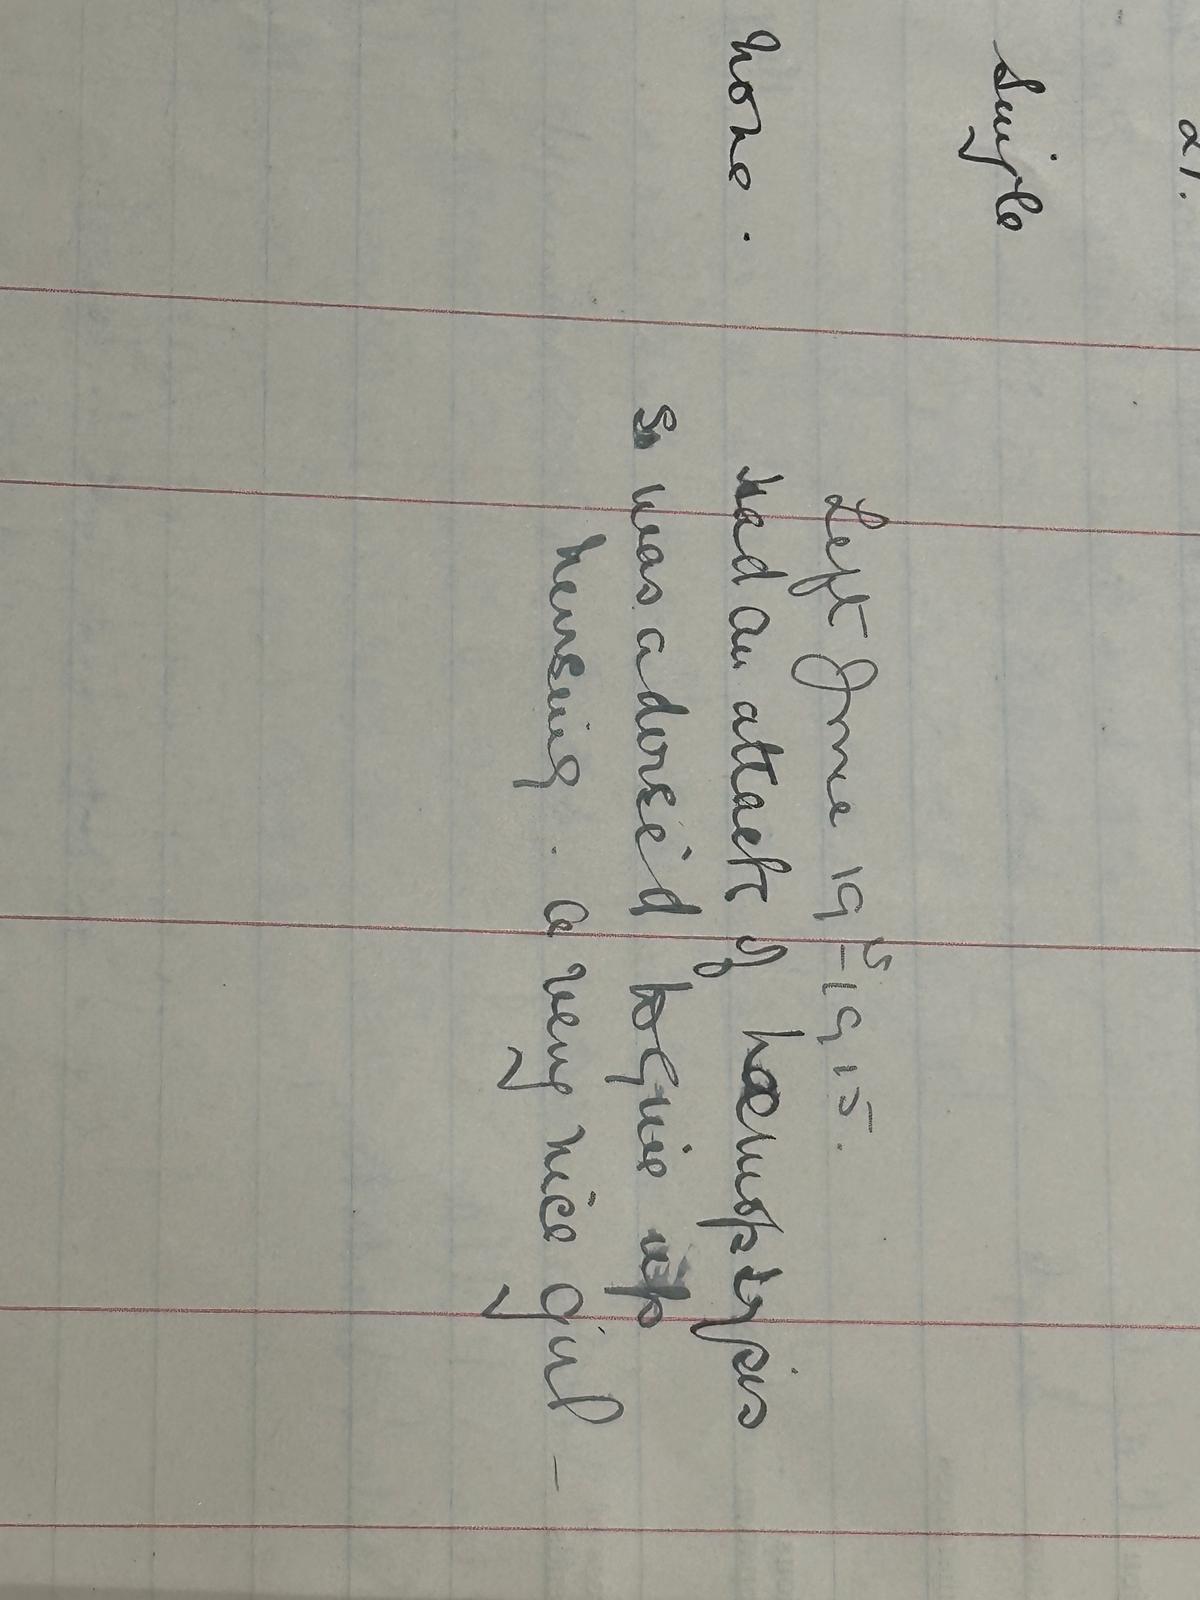 21.
Single
None.
Left June 19th-1915.
had an attack of haemoptysis
So was adversed to give up
nursing. a very nice girl -